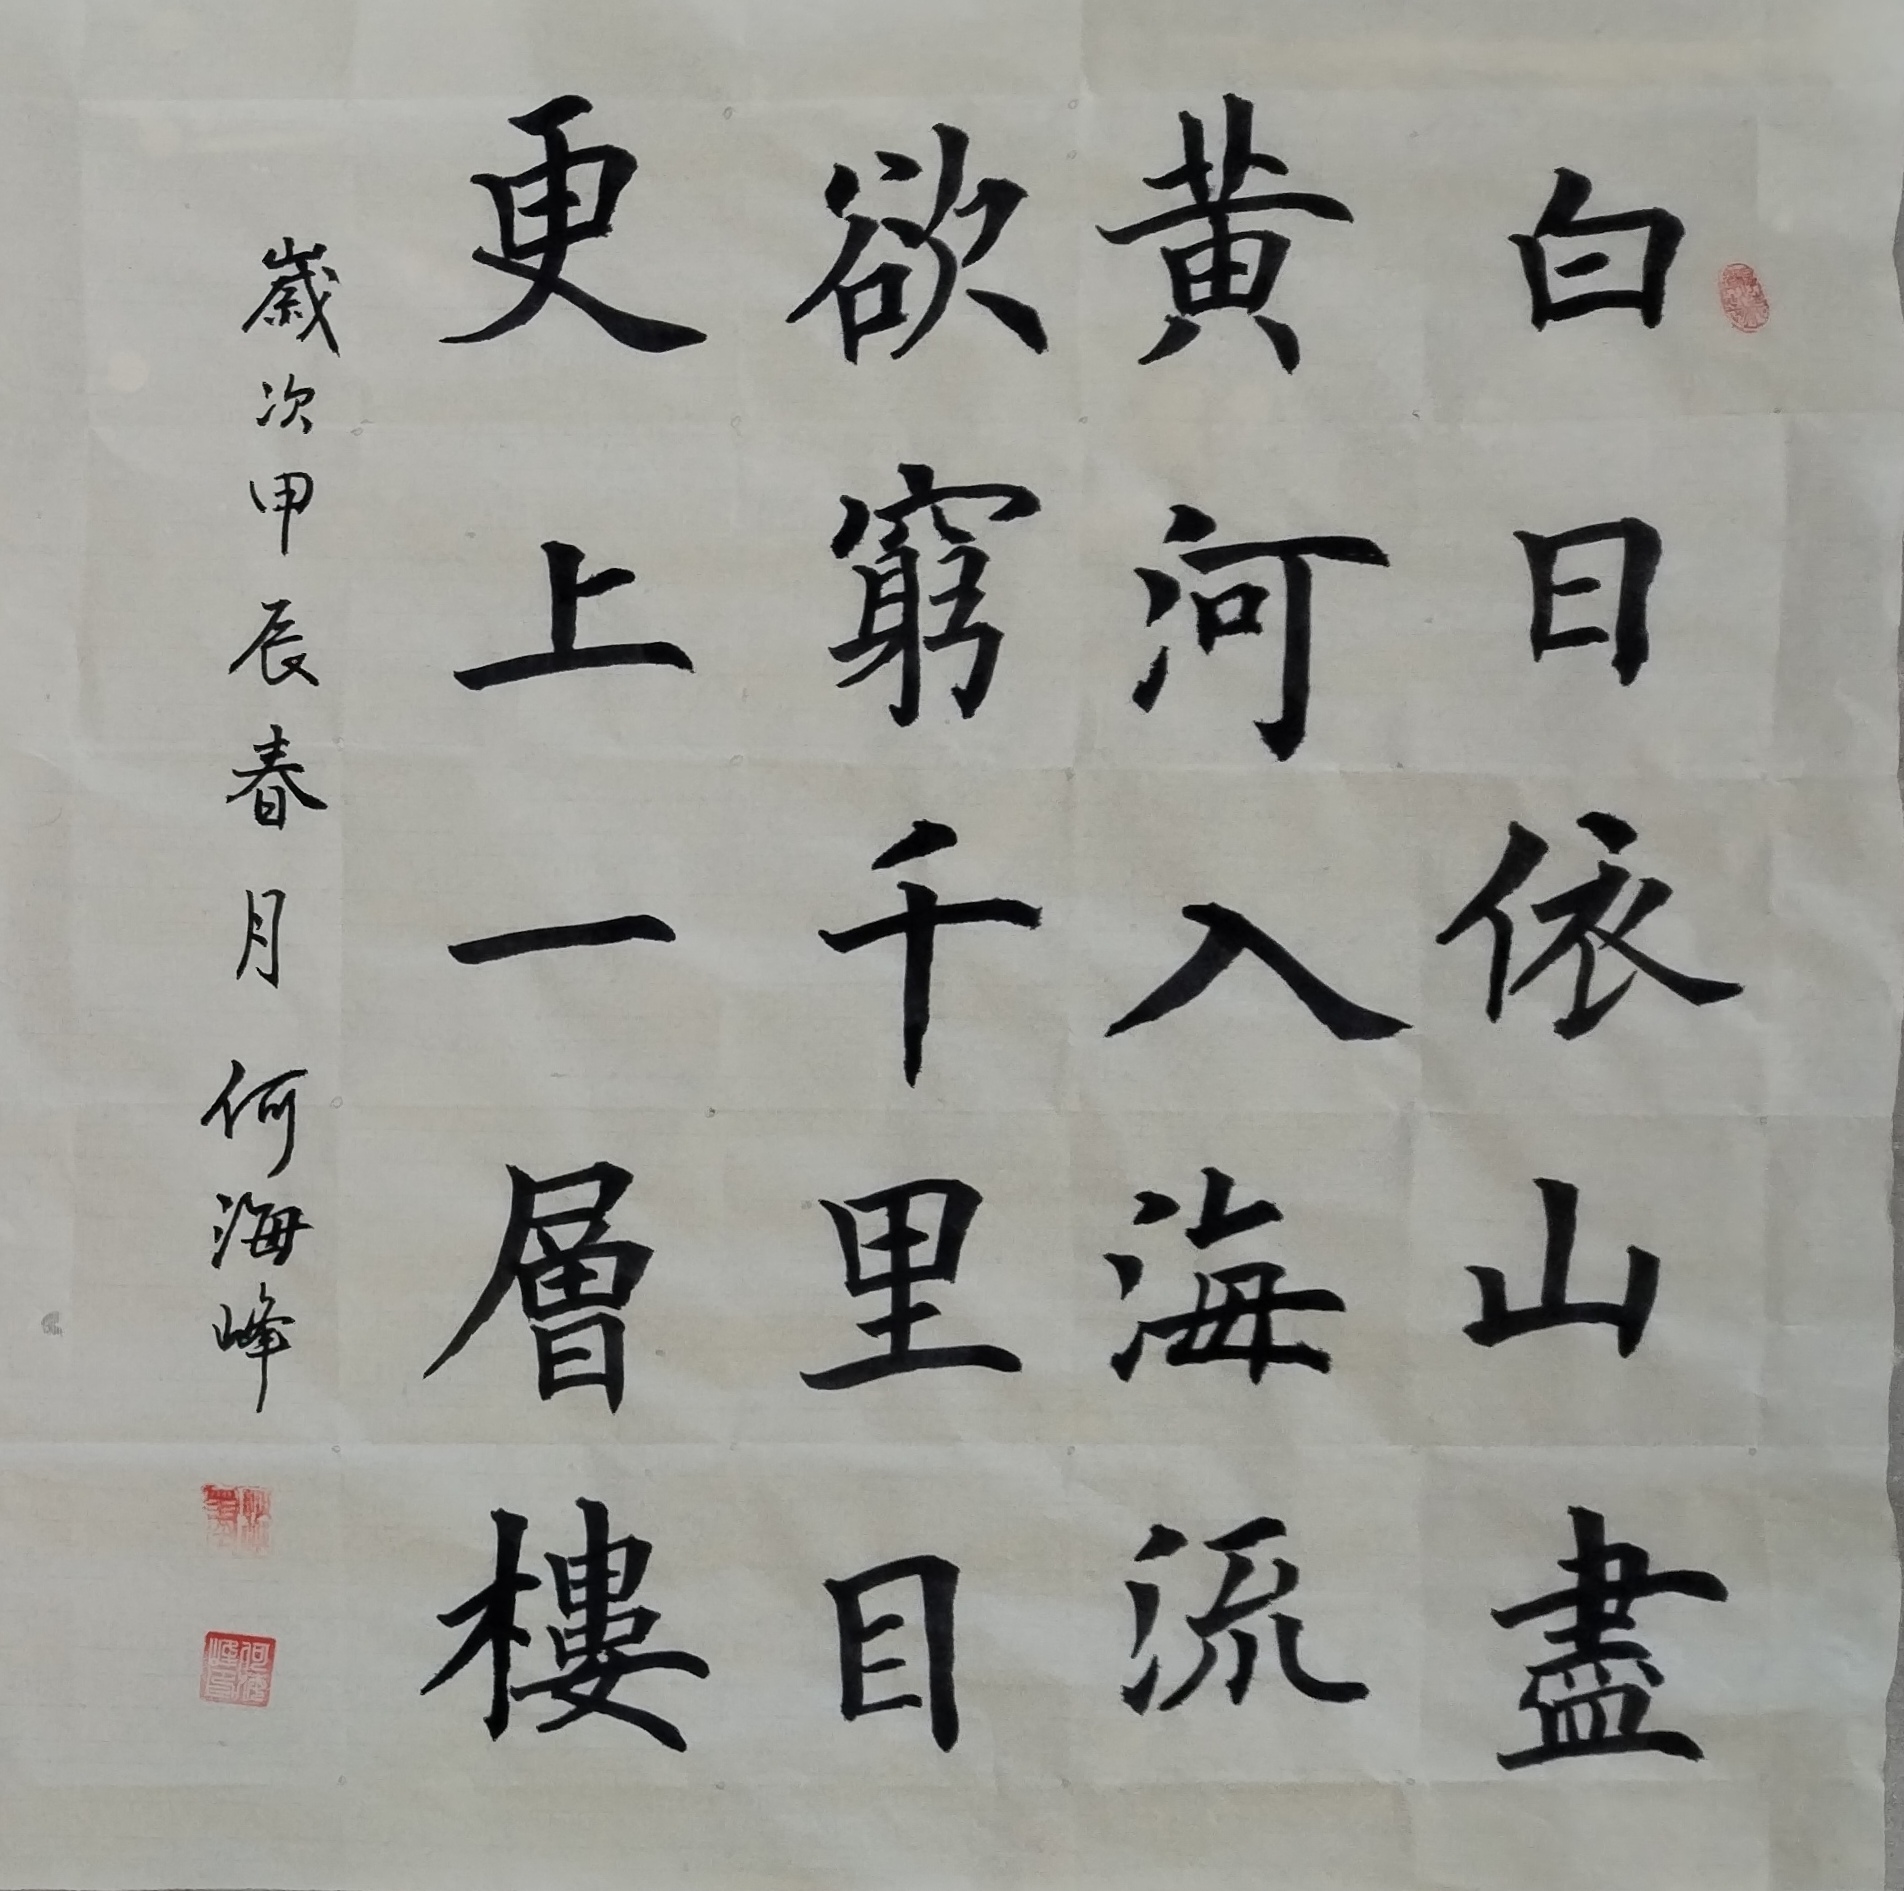 白日依山盡
黃河入海流
欲窮千里目
更上一層樓
歲次甲辰春月何海峰